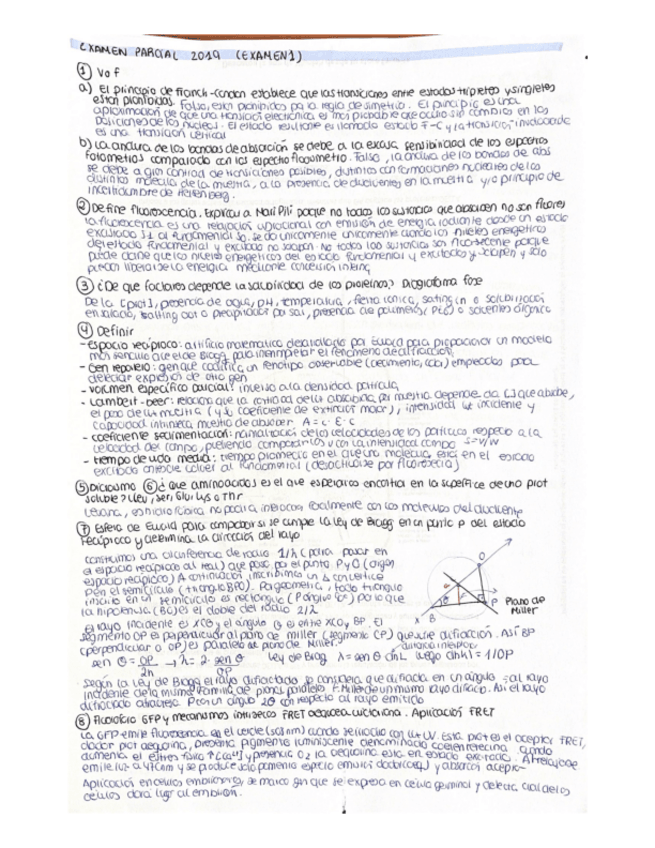 EXAMEN PARCIAL 2019 (EXAMEN 1)
① V o F
a) El principio de Franck-Condon establece que las transiciones entre estados tripletes y singletes
están prohibidas. Falso, están prohibidas por la regla de simetría. El principio es una
aproximación de que una transición electrónica es más probable que ocurra sin cambios en las
posiciones de los núcleos. El estado resultante es llamado estado F-C y la transición involucrada
es una transición vertical
b) La anchura de las bandas de absorción se debe a la escasa sensibilidad de los espectros
fotómetros comparado con los espectrofluorómetro. Falso, la anchura de las bandas de abs
se debe a gran cantidad de transiciones posibles, distintas conformaciones nucleares de las
distintas molécula de la muestra, a la presencia de disolventes en la muestra y/o principio de
incertidumbre de Heisenberg.
② Define fluorescencia. Explica a Mari Pili porque no todas las sustancias que absorben no son fluores
la fluorescencia es una relajación vibracional con emisión de energía radiante desde un estado
excitado S1 al fundamental S0. se da únicamente cuando los niveles energéticos
del estado fundamental y excitado no solapan. No todas las sustancias son fluorescente porque
puede darse que los niveles energéticos del estado fundamental y excitado se solapen y solo
puedan liberar la energía mediante conversión interna
③ ¿De que factores depende la solubilidad de las proteínas? Diagrama fase
De la [prot], presencia de agua, pH, temperatura, fuerza iónica, salting in o solubilización
en salado, salting out o precipitado por sal, presencia de polímeros (PEG) o solventes orgánico
④ Definir
- Espacio recíproco: artificio matemático desarrollado por Ewald para proporcionar un modelo
más sencillo que el de Bragg para interpretar el fenómeno de difracción,
- Gen reportero: gen que codifica un fenotipo observable (crecimiento, color) empleados para
detectar expresión de otro gen
- volumen específico parcial: inverso a la densidad partícula,
- Lambert-Beer: relaciona que la cantidad de luz absorbida por muestra depende de [] que absorbe,
el paso de luz muestra (y su coeficiente de extinción molar), intensidad luz incidente y
capacidad intrínseca muestra de absorber A = c · ε · l
- coeficiente sedimentación: normalización de las velocidades de las partículas respecto a la
velocidad del campo, pudiendo compararlos con la intensidad campo s=v/w
- tiempo de vida media: tiempo promedio en el que una molécula está en el estado
excitado antes de volver al fundamental (desactivarse por fluorescencia)
⑤ Dicroísmo ⑥ ¿que aminoácidos es el que esperarías encontrar en la superficie de una prot
soluble? Leu, ser, Glu, Lys o Thr
Leucina, es hidrofóbica no podría interaccionar fácilmente con las moléculas del disolvente
⑦ Esfera de Ewald para comprobar si se cumple la ley de Bragg en un punto P del estado
recíproco y determina la dirección del rayo
construimos una circunferencia de radio 1/λ (para pasar en
el espacio recíproco al real) que pase por el punto P y O (origen
espacio recíproco). A continuación inscribimos un Δ con vértice
P en el semicírculo (triángulo BPO). Por geometría, todo triángulo
inscrito en un semicírculo es rectángulo (P ángulo 90º) por lo que
la hipotenusa (BO) es el doble del radio 2/λ
El rayo incidente es XCO y el ángulo θ es entre XCO y BP. El
segmento OP es perpendicular al plano de Miller (segmento CP) que sufre difracción. Así BP
(perpendicular a OP) es paralelo al plano de Miller.
sen θ = OP/2/λ → λ = 2 · sen θ/OP Ley de Bragg
Según la Ley de Bragg el rayo difractado
incidente de la misma familia de planos paralelos
difractado atraviesa P con un ángulo 2θ con respecto al rayo emitido
O
P
X
B
Plano de
Miller
⑧ Fluoróforo GFP y mecanismos intrínsecos FRET aequorea victoriana. Aplicación FRET
La GFP emite fluorescencia en el verde (508nm) cuando se irradia con luz UV. Esta prot es el aceptor FRET,
dador por aequorina, presenta pigmento luminiscente denominado coelenterazina. Cuando
aumenta el estrés físico ↑[Ca²⁺] y presencia O₂ la aequorina está en estado excitado. Al relajarse
emite luz
Aplicación en células embrionarias se marca gen que se expresa en célula germinal y detecta cual de las
células dará lugar al embrión.